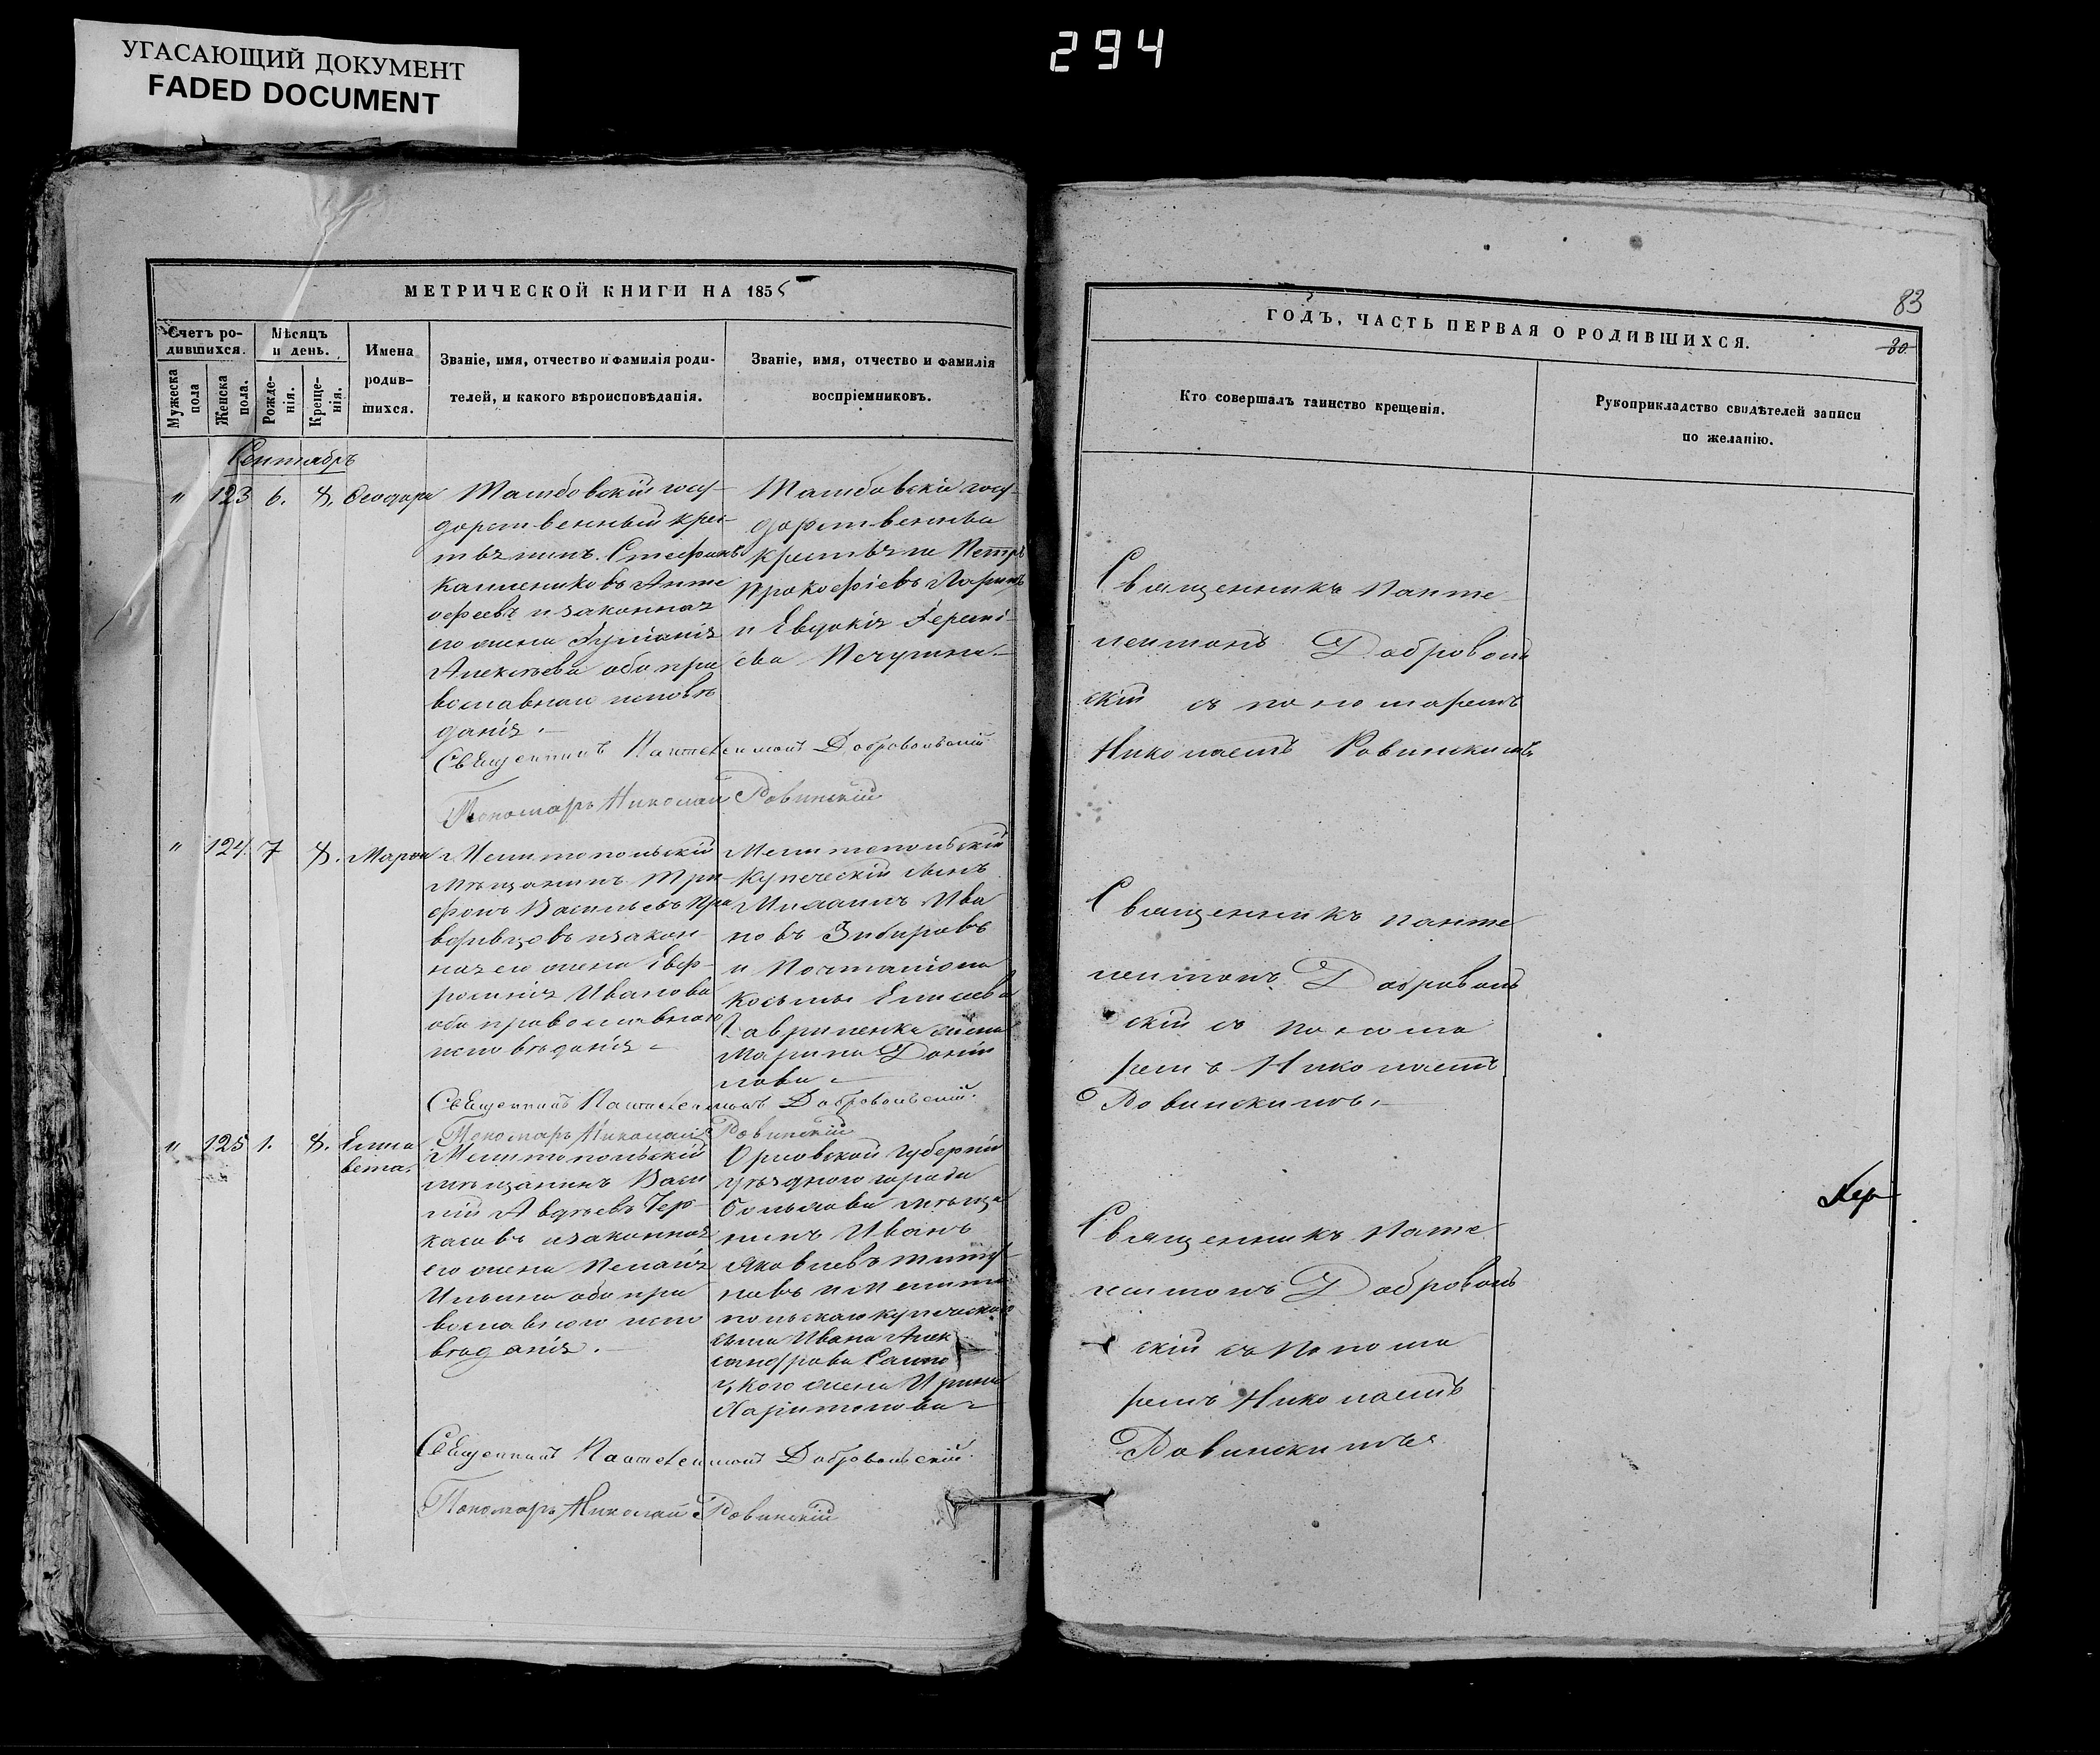 УГАСАЮЩИЙ ДОКУМЕНТ
FADED DOCUMENT
294
МЕТРИЧЕСКОЙ КНИГИ НА 1855
Счетъ ро-
дившихся.
Мѣсяцъ
и день.
Имена
родив-
шихся.
Званіе, имя, отчество и фамилія роди-
телей, и какого вѣроисповѣданія.
Званіе, имя, отчество и фамилія
воспріемниковъ.
Мужеска
пола
Женска
пола.
Рожде-
нія.
Креще-
нія.
Сентябрь
" 123 6. 8. Ѳеодора
Тамбовскій госу-
дарственный крес-
тьянинъ Стефанъ
законная
его жена
Алексѣева оба пра
вославнаго исповѣ
данія.
Тамбовскіе госу-
дарственные
крестьяне Петръ
Прокофіевъ Ларинъ
и Евдокія
Священникъ Пантелеимонъ Добровольскій
Пономарь Николай Ровинскій
" 124. 7 8. Марѳа
Мелитопольскій
мѣщанинъ Три-
фонъ Васильевъ
и закон-
ная его жена Евф-
росинія Иванова
оба православнаго
исповѣданія
Мелитопольскій
купеческій сынъ
Михаилъ Ива
новъ Зибировъ
и
Косьмы Елисеева
Гавриленка жена
Марина Дании
лова
Священникъ Пантелеимонъ Добровольскій.
Пономарь Николай Ровинскій
" 125 1. 8. Елиса
вета.
Мелитопольскій
мѣщанинъ Васи
лій Авдѣевъ Чер-
касовъ и законная
его жена Пелагія
Ильина оба пра
вославнаго испо
вѣданія.
Орловской губерніи
уѣзднаго города
Болхова мѣща
нинъ Иванъ
Яковлевъ
новъ и Мелито
польскаго купеческаго
сына Ивана Алек
сандрова
жена Ирина
Харитонова
Священникъ Пантелеимонъ Добровольскій.
Пономарь Николай Ровинскій
83
ГОДЪ, ЧАСТЬ ПЕРВАЯ О РОДИВШИХСЯ.
30
Кто совершалъ таинство крещенія.
Рукоприкладство свидѣтелей записи
по желанію.
Священникъ Панте
леимонъ Доброволь
скій съ пономаремъ
Николаемъ Ровинскимъ
Священникъ Панте
леимонъ Доброволь
скій съ понома
ремъ Николаемъ
Ровинскимъ.
Священникъ Панте
леимонъ Доброволь
скій съ понома
ремъ Николаемъ
Ровинскимъ.